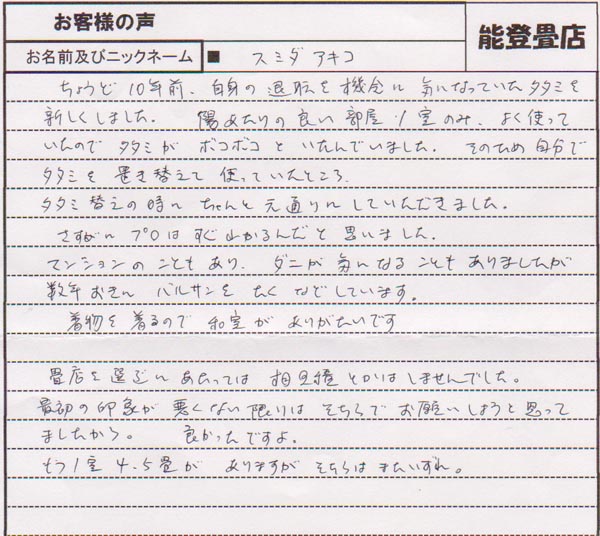 お客様の声
能登畳店
お名前及びニックネーム ■ スミダ アキコ
ちょうど10年前、自身の退職を機会に気になっていたタタミを
新しくしました。 陽あたりの良い部屋1室のみ、よく使って
いたのでタタミがボコボコといたんでいました。 そのため自分で
タタミを置き替えて使っていたところ、
タタミ替えの時にちゃんと元通りにしていただきました。
さすがにプロはすぐ山かるんだと思いました。
マンションのこともあり、ダニが気になることもありましたが
数年おきにバルサンをたくなどしています。
着物を着るので和室がありがたいです
畳店を選ぶにあたっては相見積とかはしませんでした。
最初の印象が悪くない限りはそちらでお願いしようと思って
ましたから。 良かったですよ。
もう1室4.5畳がありますがそちらはまたいずれ。